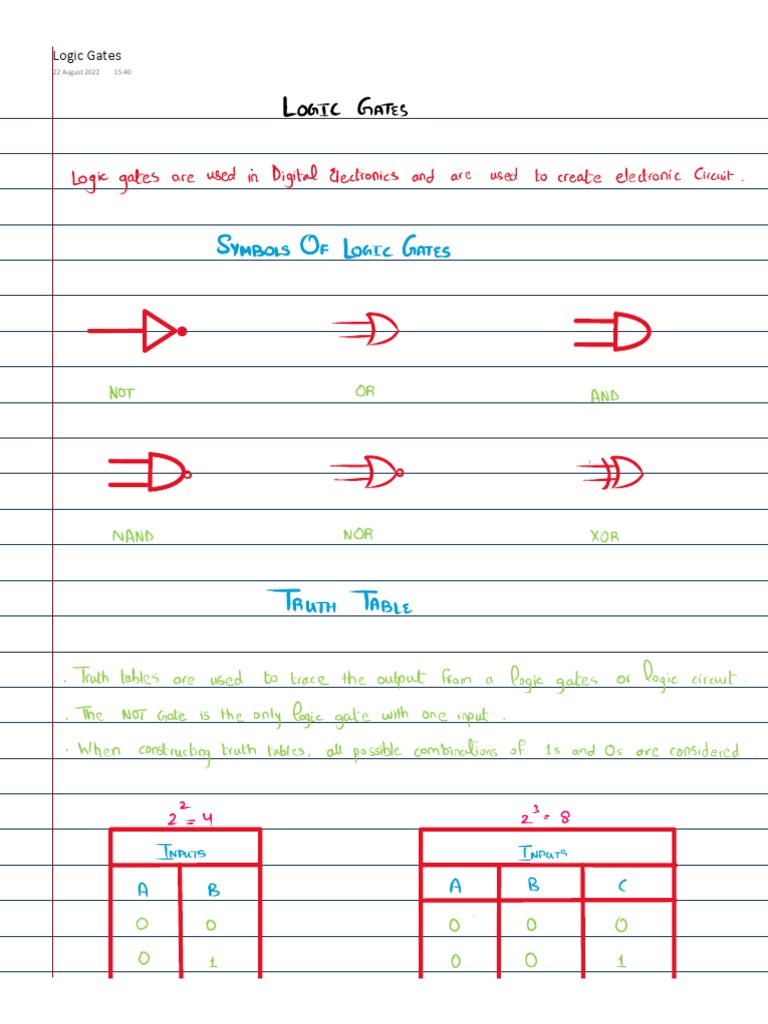 Logic Gates
22 August 2022 15:40
LOGIC GATES
Logic gates are used in Digital Electronics and are used to create electronic Circuit.
SYMBOLS OF LOGIC GATES
NOT OR AND
NAND NOR XOR
TRUTH TABLE
. Truth tables are used to trace the output from a logic gates or logic circuit.
. The NOT Gate is the only logic gate with one input.
. When constructing truth tables, all possible combinations of 1s and 0s are considered
2² = 4 2³ = 8
INPUTS INPUTS
A B A B C
0 0 0 0 0
0 1 0 0 1